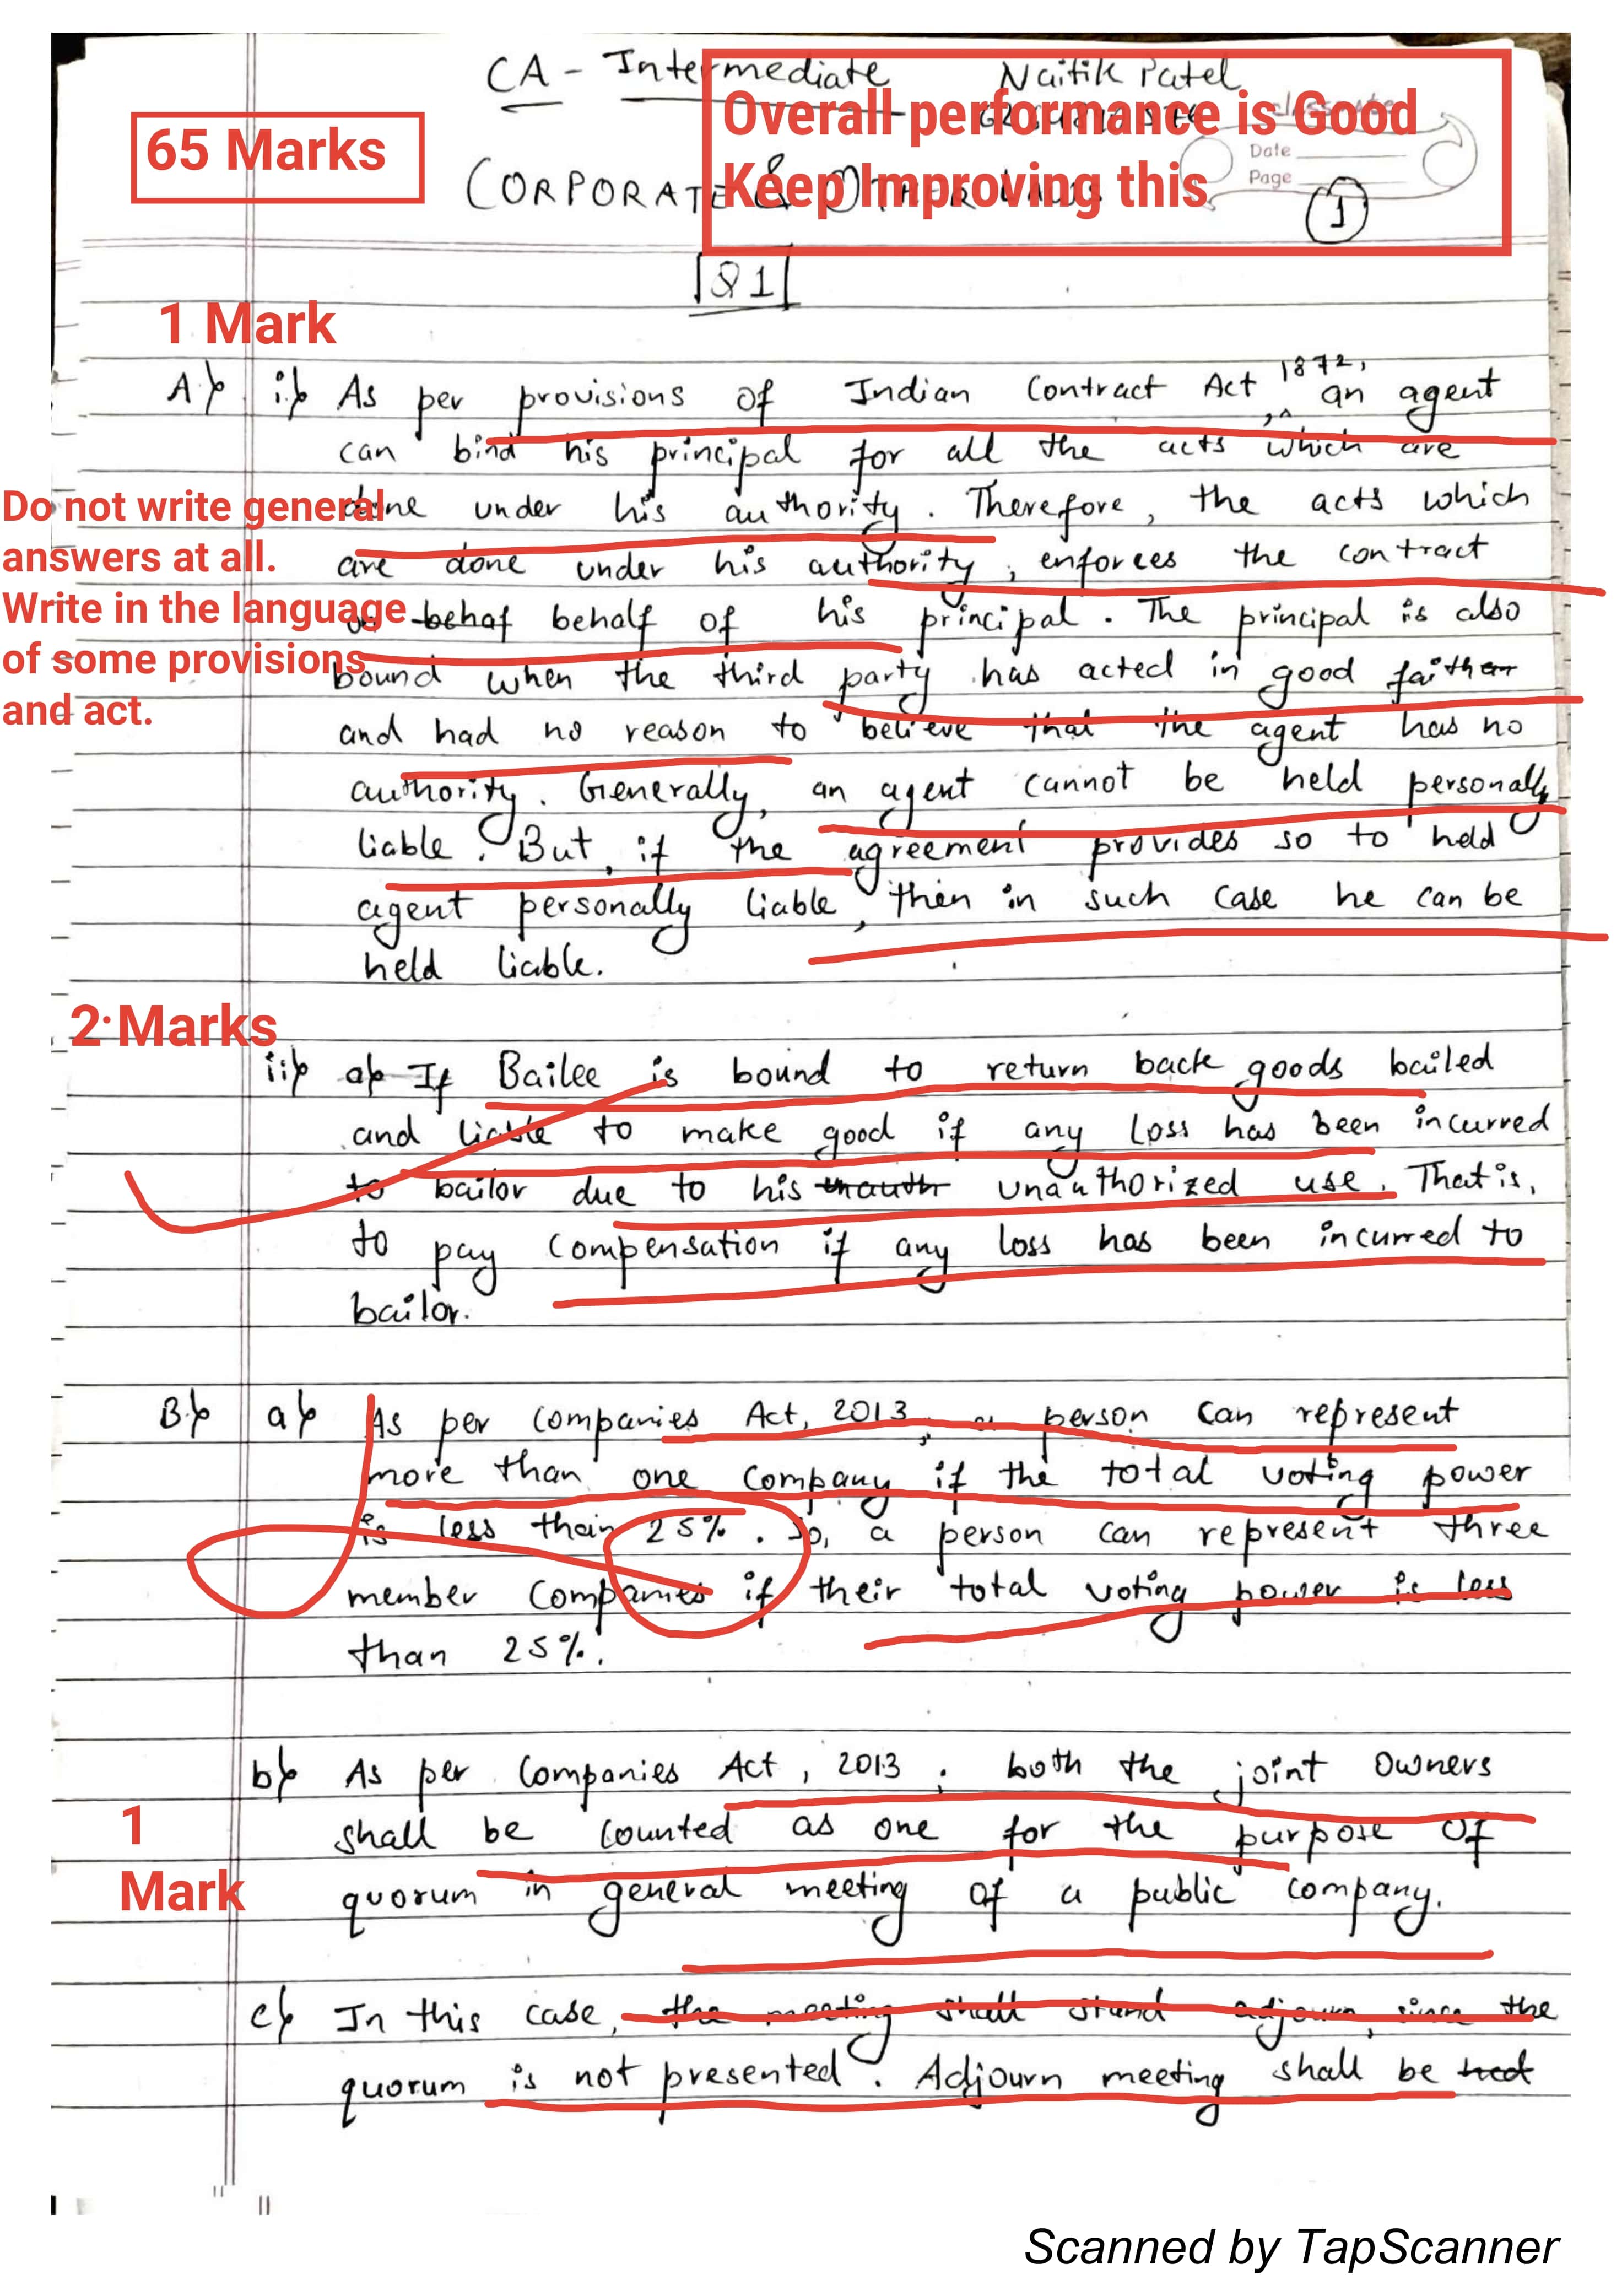 CA - Intermediate Naitik Patel
65 Marks
Overall performance is Good
Keep Improving this
CORPORATE & OTHER LAWS
classmate
Date
Page
1
Q1
1 Mark
A) i) As per provisions of Indian Contract Act, 1872, an agent
can bind his principal for all the acts which are
done under his authority. Therefore, the acts which
are done under his authority, enforces the contract
on behaf behalf of his principal. The principal is also
bound when the third party has acted in good faith or
and had no reason to believe that the agent has no
authority. Generally, an agent cannot be held personally
liable. But, if the agreement provides so to held
agent personally liable, then in such case he can be
held liable.
Do not write general
answers at all.
Write in the language
of some provisions
and act.
2 Marks
ii) a) If Bailee is bound to return back goods bailed
and liable to make good if any loss has been incurred
to bailor due to his unauthorized use. That is,
to pay compensation if any loss has been incurred to
bailor.
B) a) As per companies Act, 2013, a person can represent
more than one company if the total voting power
is less than 25%. So, a person can represent three
member companies if their total voting power is less
than 25%.
b) As per Companies Act, 2013, both the joint owners
shall be counted as one for the purpose of
quorum in general meeting of a public company.
1
Mark
c) In this case, the meeting shall stand adjourn, since the
quorum is not presented. Adjourn meeting shall be
Scanned by TapScanner